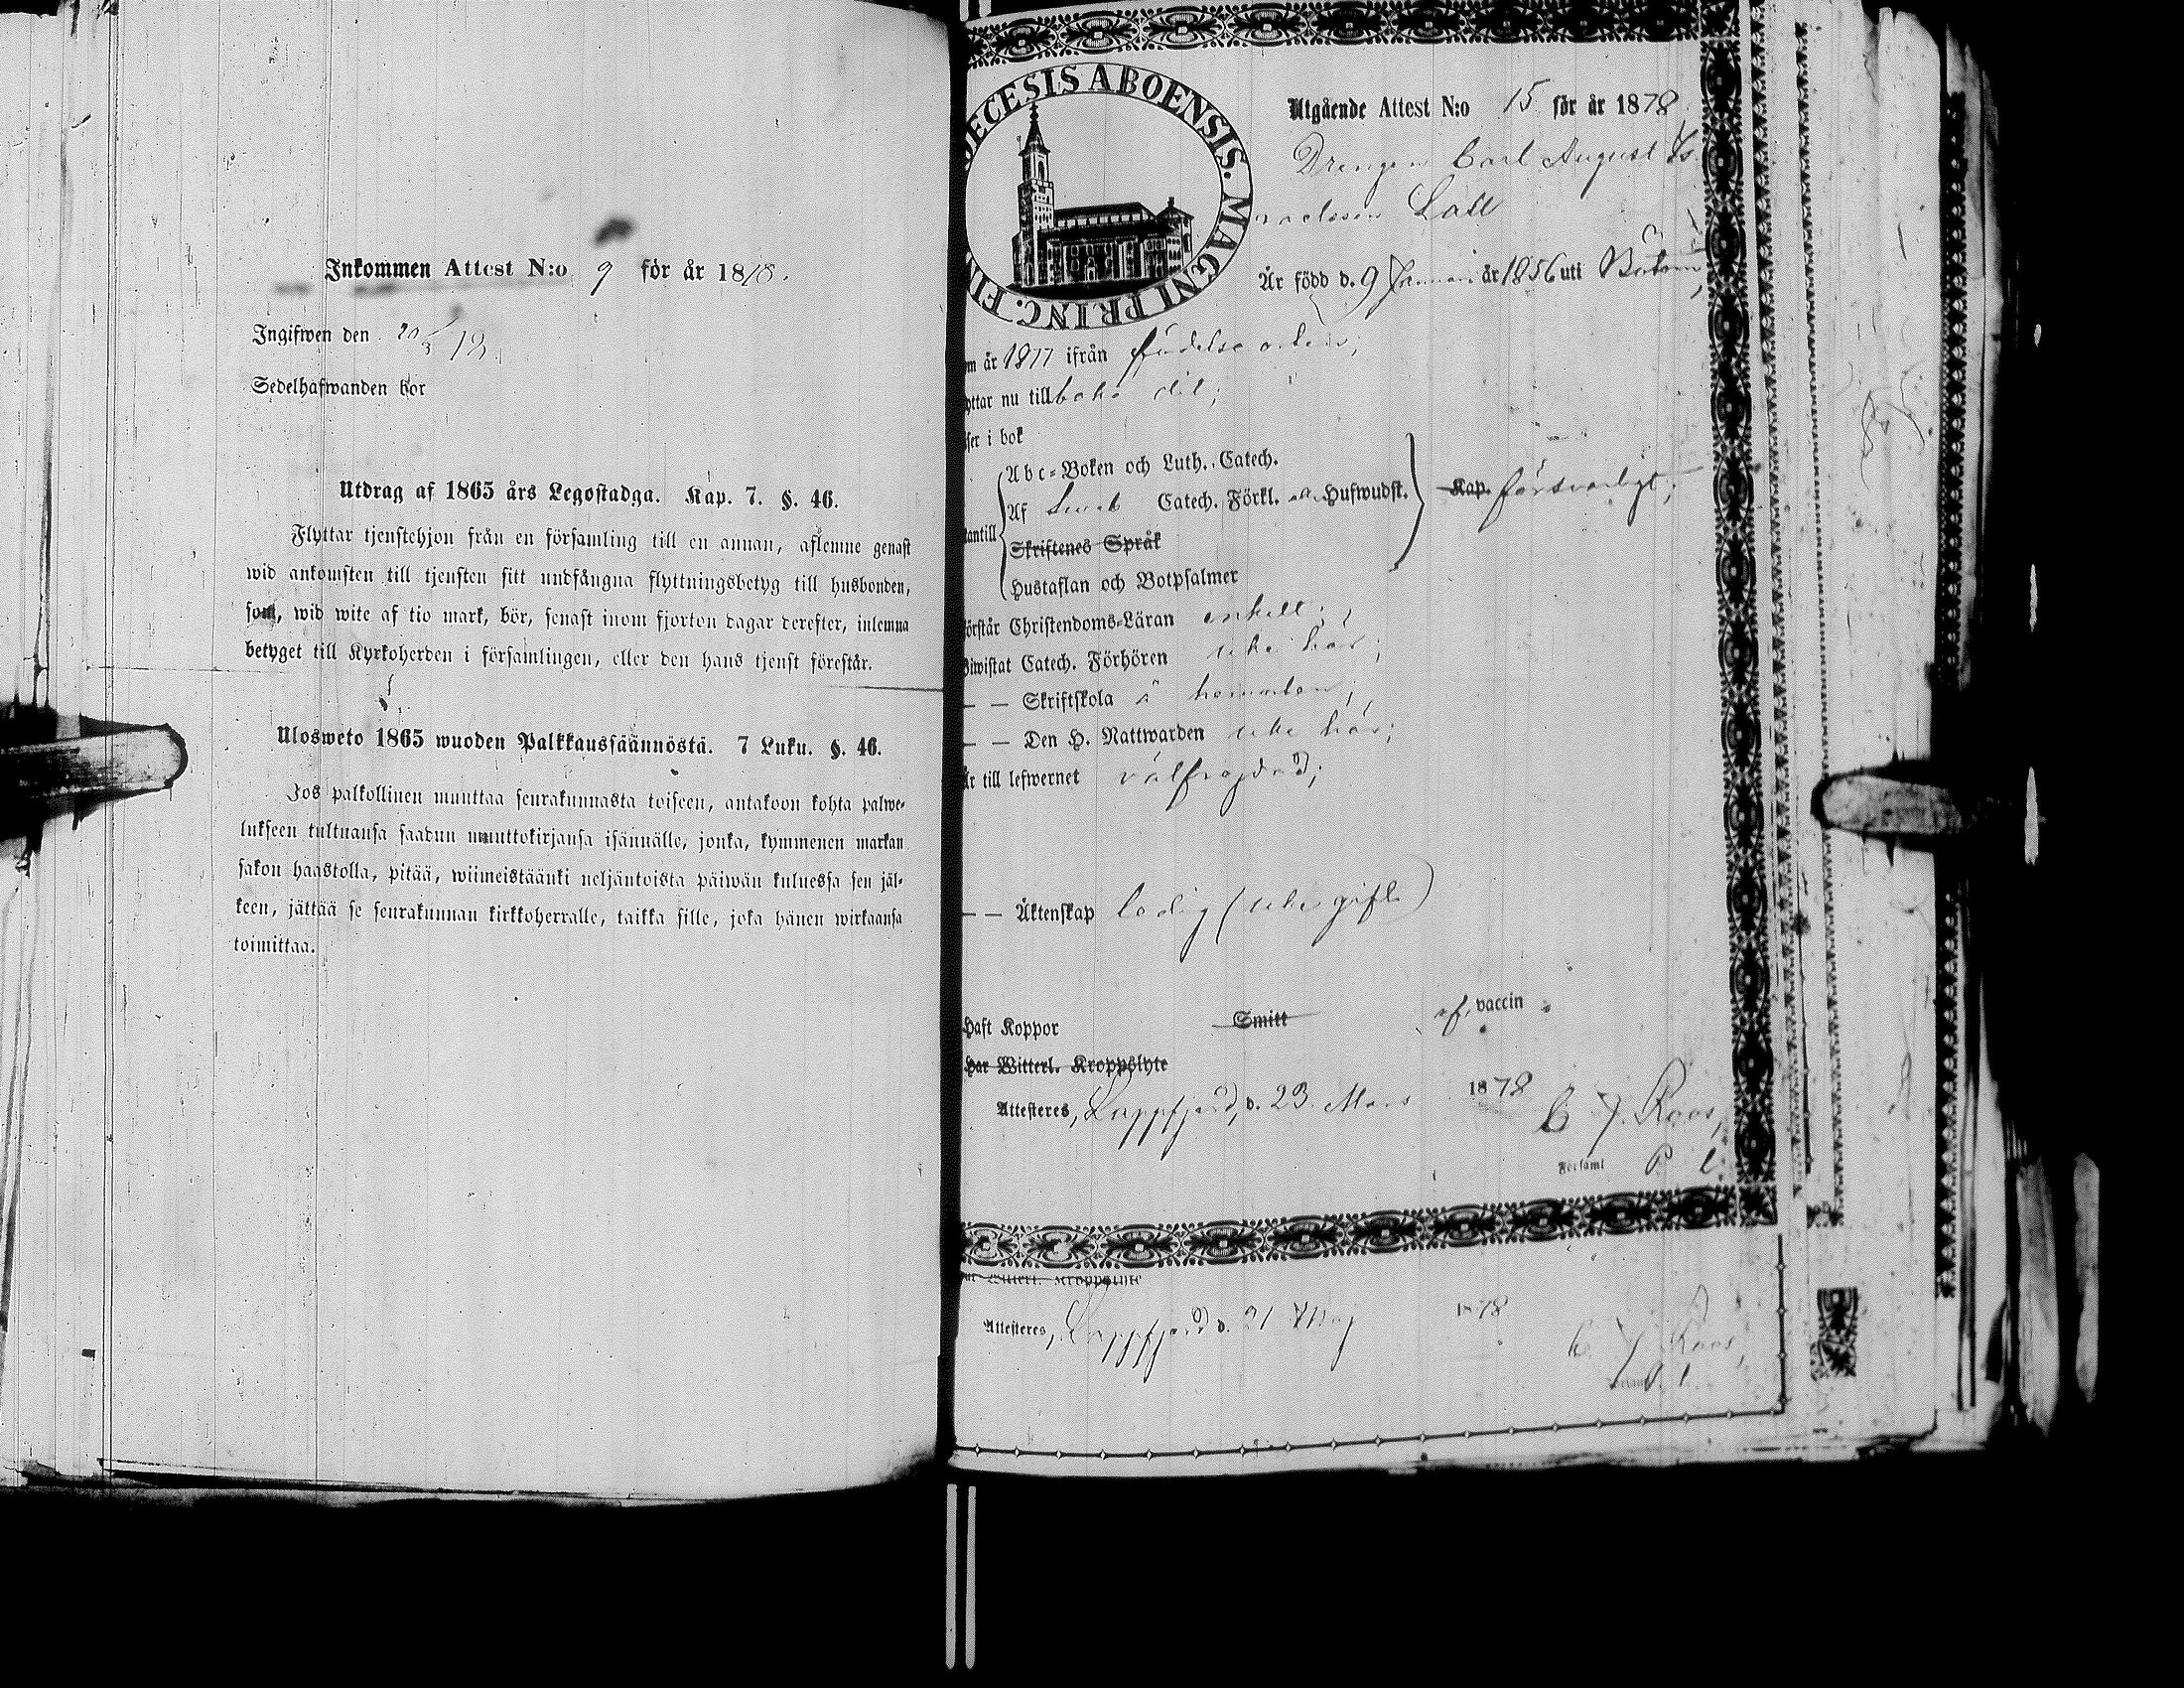 Inkommen Attest N:o 9 för år 1878.
Ingifwen den 20/3 78.
Sedelhafwanden bor
Utdrag af 1865 års Legostadga. Kap. 7. §. 46.
Flyttar tjenstehjon från en församling till en annan, aflemne genast
wid ankomsten till tjensten sitt undfångna flyttningsbetyg till husbonden,
som, wid wite af tio mark, bör, senast inom fjorton dagar derefter, inlemna
betyget till Kyrkoherden i församlingen, eller den hans tjenst förestår.
Ulosweto 1865 wuoden Palkkaussäännöstä. 7 Luku. §. 46.
Jos palkollinen muuttaa seurakunnasta toiseen, antakoon kohta palwe-
lukseen tultuansa saadun muuttokirjansa isännälle, jonka, kymmenen markan
sakon haastolla, pitää, wiimeistäänki neljäntoista päiwän kuluessa sen jäl-
keen, jättää se seurakunnan kirkkoherralle, taikka sille, joka hänen wirkaansa
toimittaa.
ECESIS ABOENSIS. MAGNI PRINC. FIN
Utgående Attest N:o 15 för år 1878
Drengen Carl August Is-
raelsson Lall
Är född d. 9 Januari år 1856 uti Bötom,
m år 1877 ifrån födelse orten;
yttar nu tillbaka dit;
ser i bok
Abc-Boken och Luth. Catech.
Af Catech. Förkl. Hufwudst. Kap. försvarligt;
tantill
Skriftenes Språk
Hustaflan och Botpsalmer
örstår Christendoms-Läran enkelt;
Biwistat Catech. Förhören icke här;
— — Skriftskola i hemorten;
— — Den H. Nattwarden icke här;
Är till lefwernet välfrejdad;
— — Äktenskap ledig (icke gift)
Haft Koppor Smitt af vaccin
Har Witterl. Kroppslyte
Attesteres, Lappfjerd, d. 23 Mars 1878
C J. Roos,
Församl P l
Attesteres, Lappfjerd d. 21 Maj 1878
C J Roos,
P. l